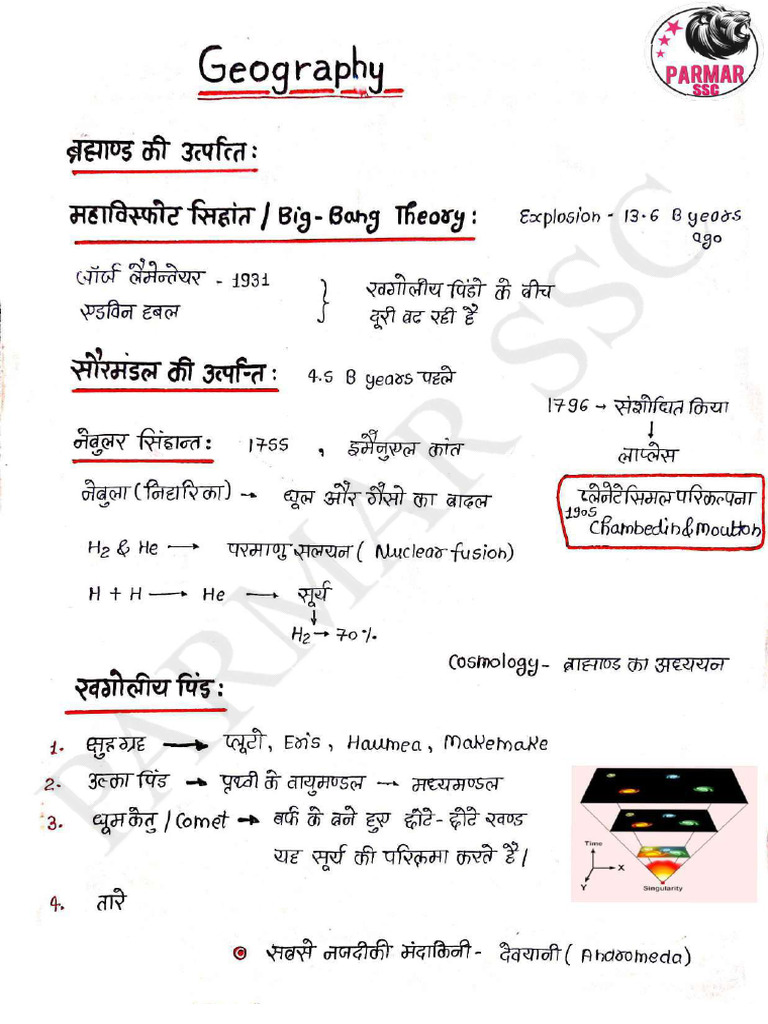 PARMAR
SSC
Geography
ब्रह्माण्ड की उत्पत्ति :
महाविस्फोट सिद्धांत / Big-Bang Theory :
Explosion - 13.6 B years
ago
जॉर्ज लैमेन्तेयर - 1931
एडविन हबल
खगोलीय पिंडो के बीच
दूरी बढ रही है
सौरमंडल की उत्पत्ति :
4.5 B years पहले
1796 → संशोधित किया
↓
लाप्लेस
नेबुलर सिद्दान्त : 1755 , इमैनुएल कांत
नेबुला (निहारिका) → धूल और गैसो का बादल
प्लेनेटेसिमल परिकल्पना
1905
Chambedin & Moulton
H2 & He → परमाणु सलयन ( Nuclear fusion)
H + H → He → सूर्य
↓
H2 → 70%
Cosmology - ब्राह्माण्ड का अध्ययन
खगोलीय पिंड :
1. क्षुद्रग्रह → प्लूटो, Eris, Haumea, Makemake
2. उल्का पिंड → पृथ्वी के वायुमण्डल → मध्यमण्डल
3. धूमकेतु / Comet → बर्फ के बने हुए छोटे-छोटे खण्ड
यह सूर्य की परिक्रमा करते हैं।
Time
X
Y
Singularity
4. तारे
सबसे नजदीकी मंदाकिनी - देवयानी ( Andromeda)
PARMAR SSC